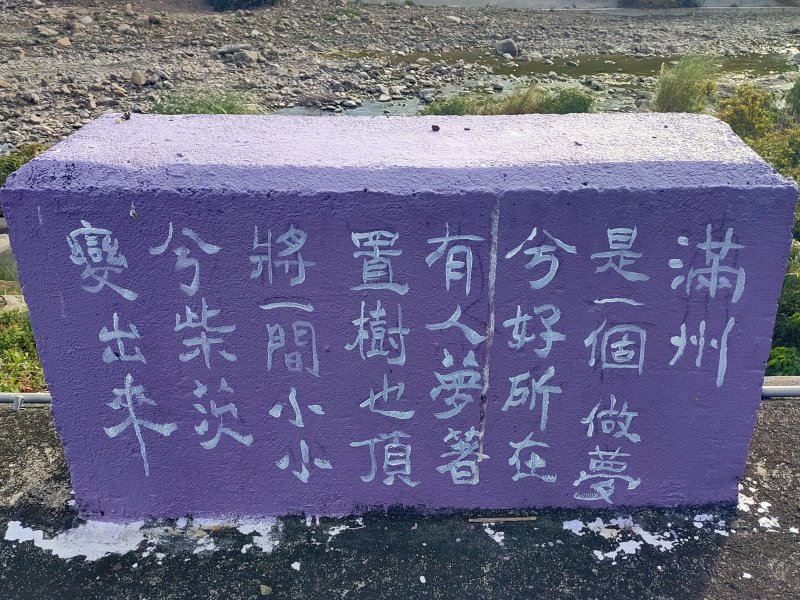 滿州
是一個做夢
兮好所在
有人夢著
置樹也頂
將一間小小
兮柴茨
變出來